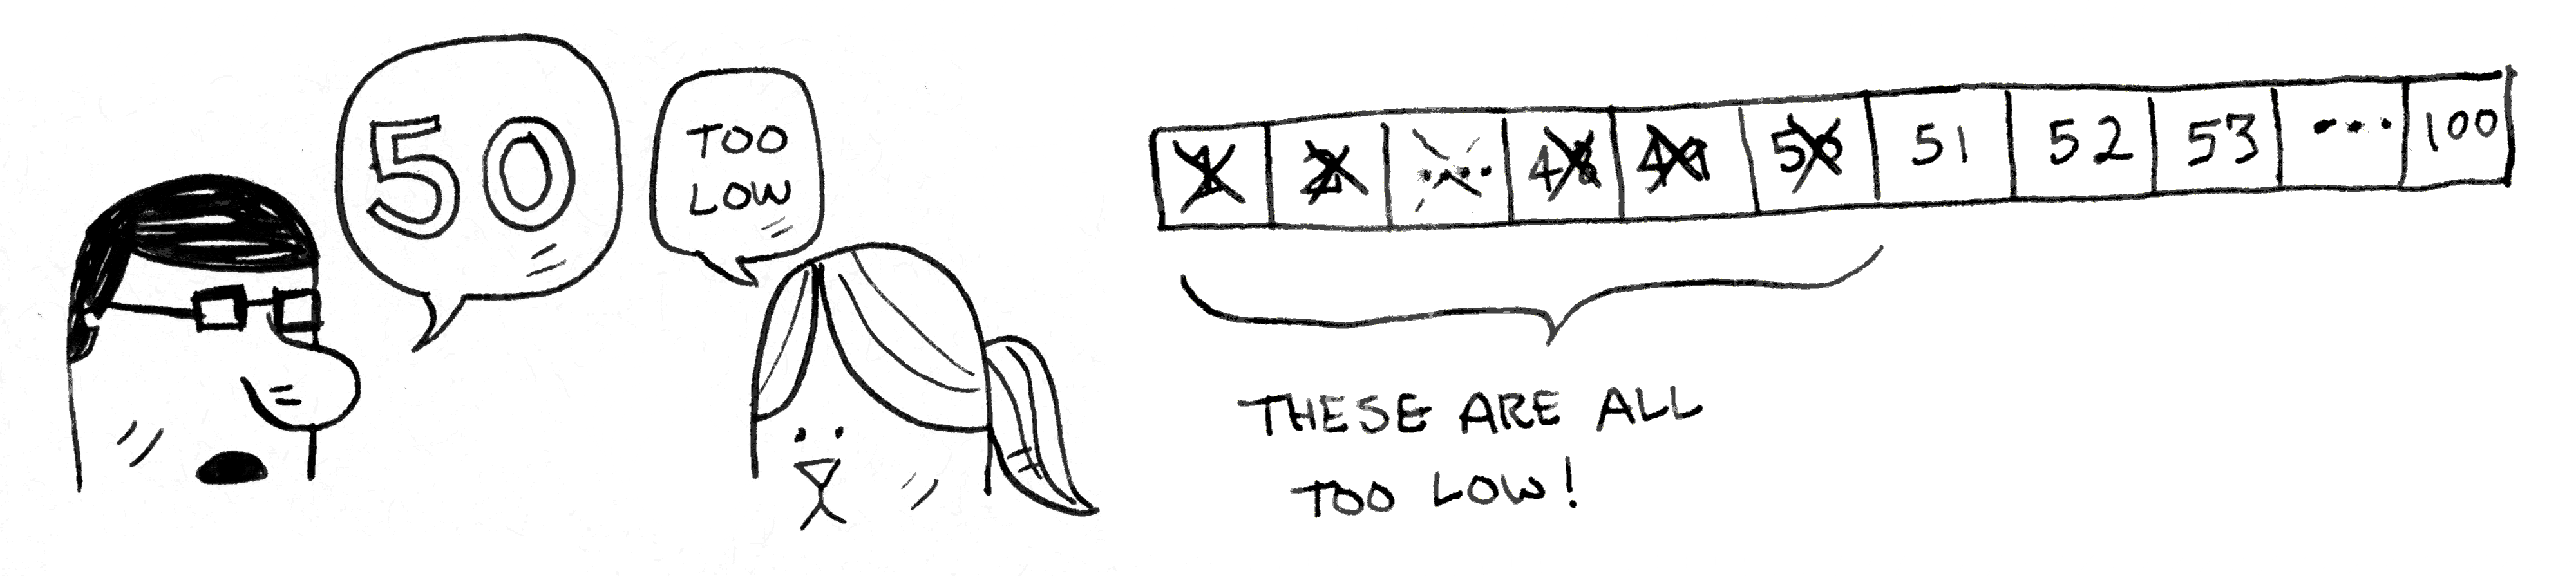 50
TOO
LOW
1 2 ... 48 49 50 51 52 53 ... 100
THESE ARE ALL
TOO LOW!